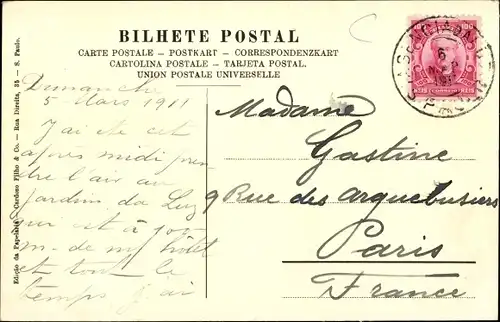 BILHETE POSTAL
CARTE POSTALE – POSTKART – CORRESPONDENZKART
CARTOLINA POSTALE – TARJETA POSTAL.
UNION POSTALE UNIVERSELLE
Edição da Papelaria Cardozo Filho & Co. — Rua Direita, 35 — S. Paulo.
Dimanche
5 Mars 1911
J'ai été cet
après midi pren
dre l'air au
jardin da Luz
qui est à 300
m. de mon hôtel
et tout le
temps j'ai
Madame
Gastine
9 Rue des arquebusiers
Paris
France
100
REIS